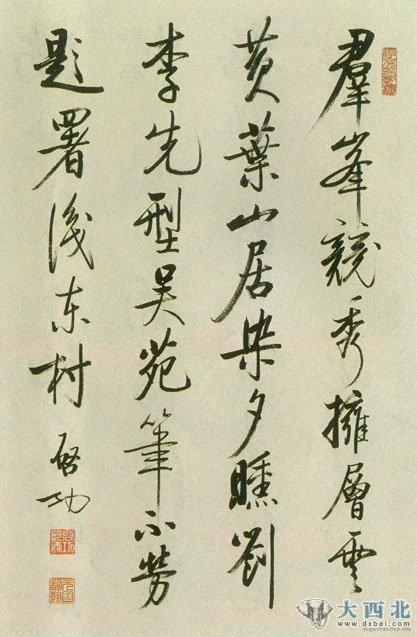 羣峯競秀擁層雲
黄葉山居染夕曛劉
李先型吴苑筆不勞
題署後东村
啓功
大西北
www.dxbei.com